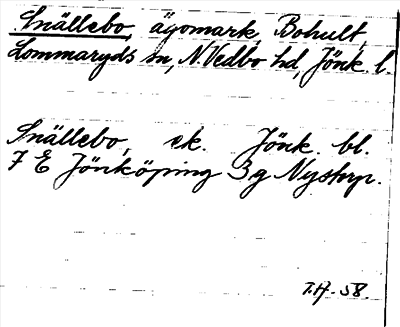 Snällebo, ägomark, Bohult,
Lommaryds sn, N. Vedbo hd, Jönk. l.
Snällebo, ek. Jönk. bl.
7 E Jönköping 3g Nystorp.
T.H. 58.